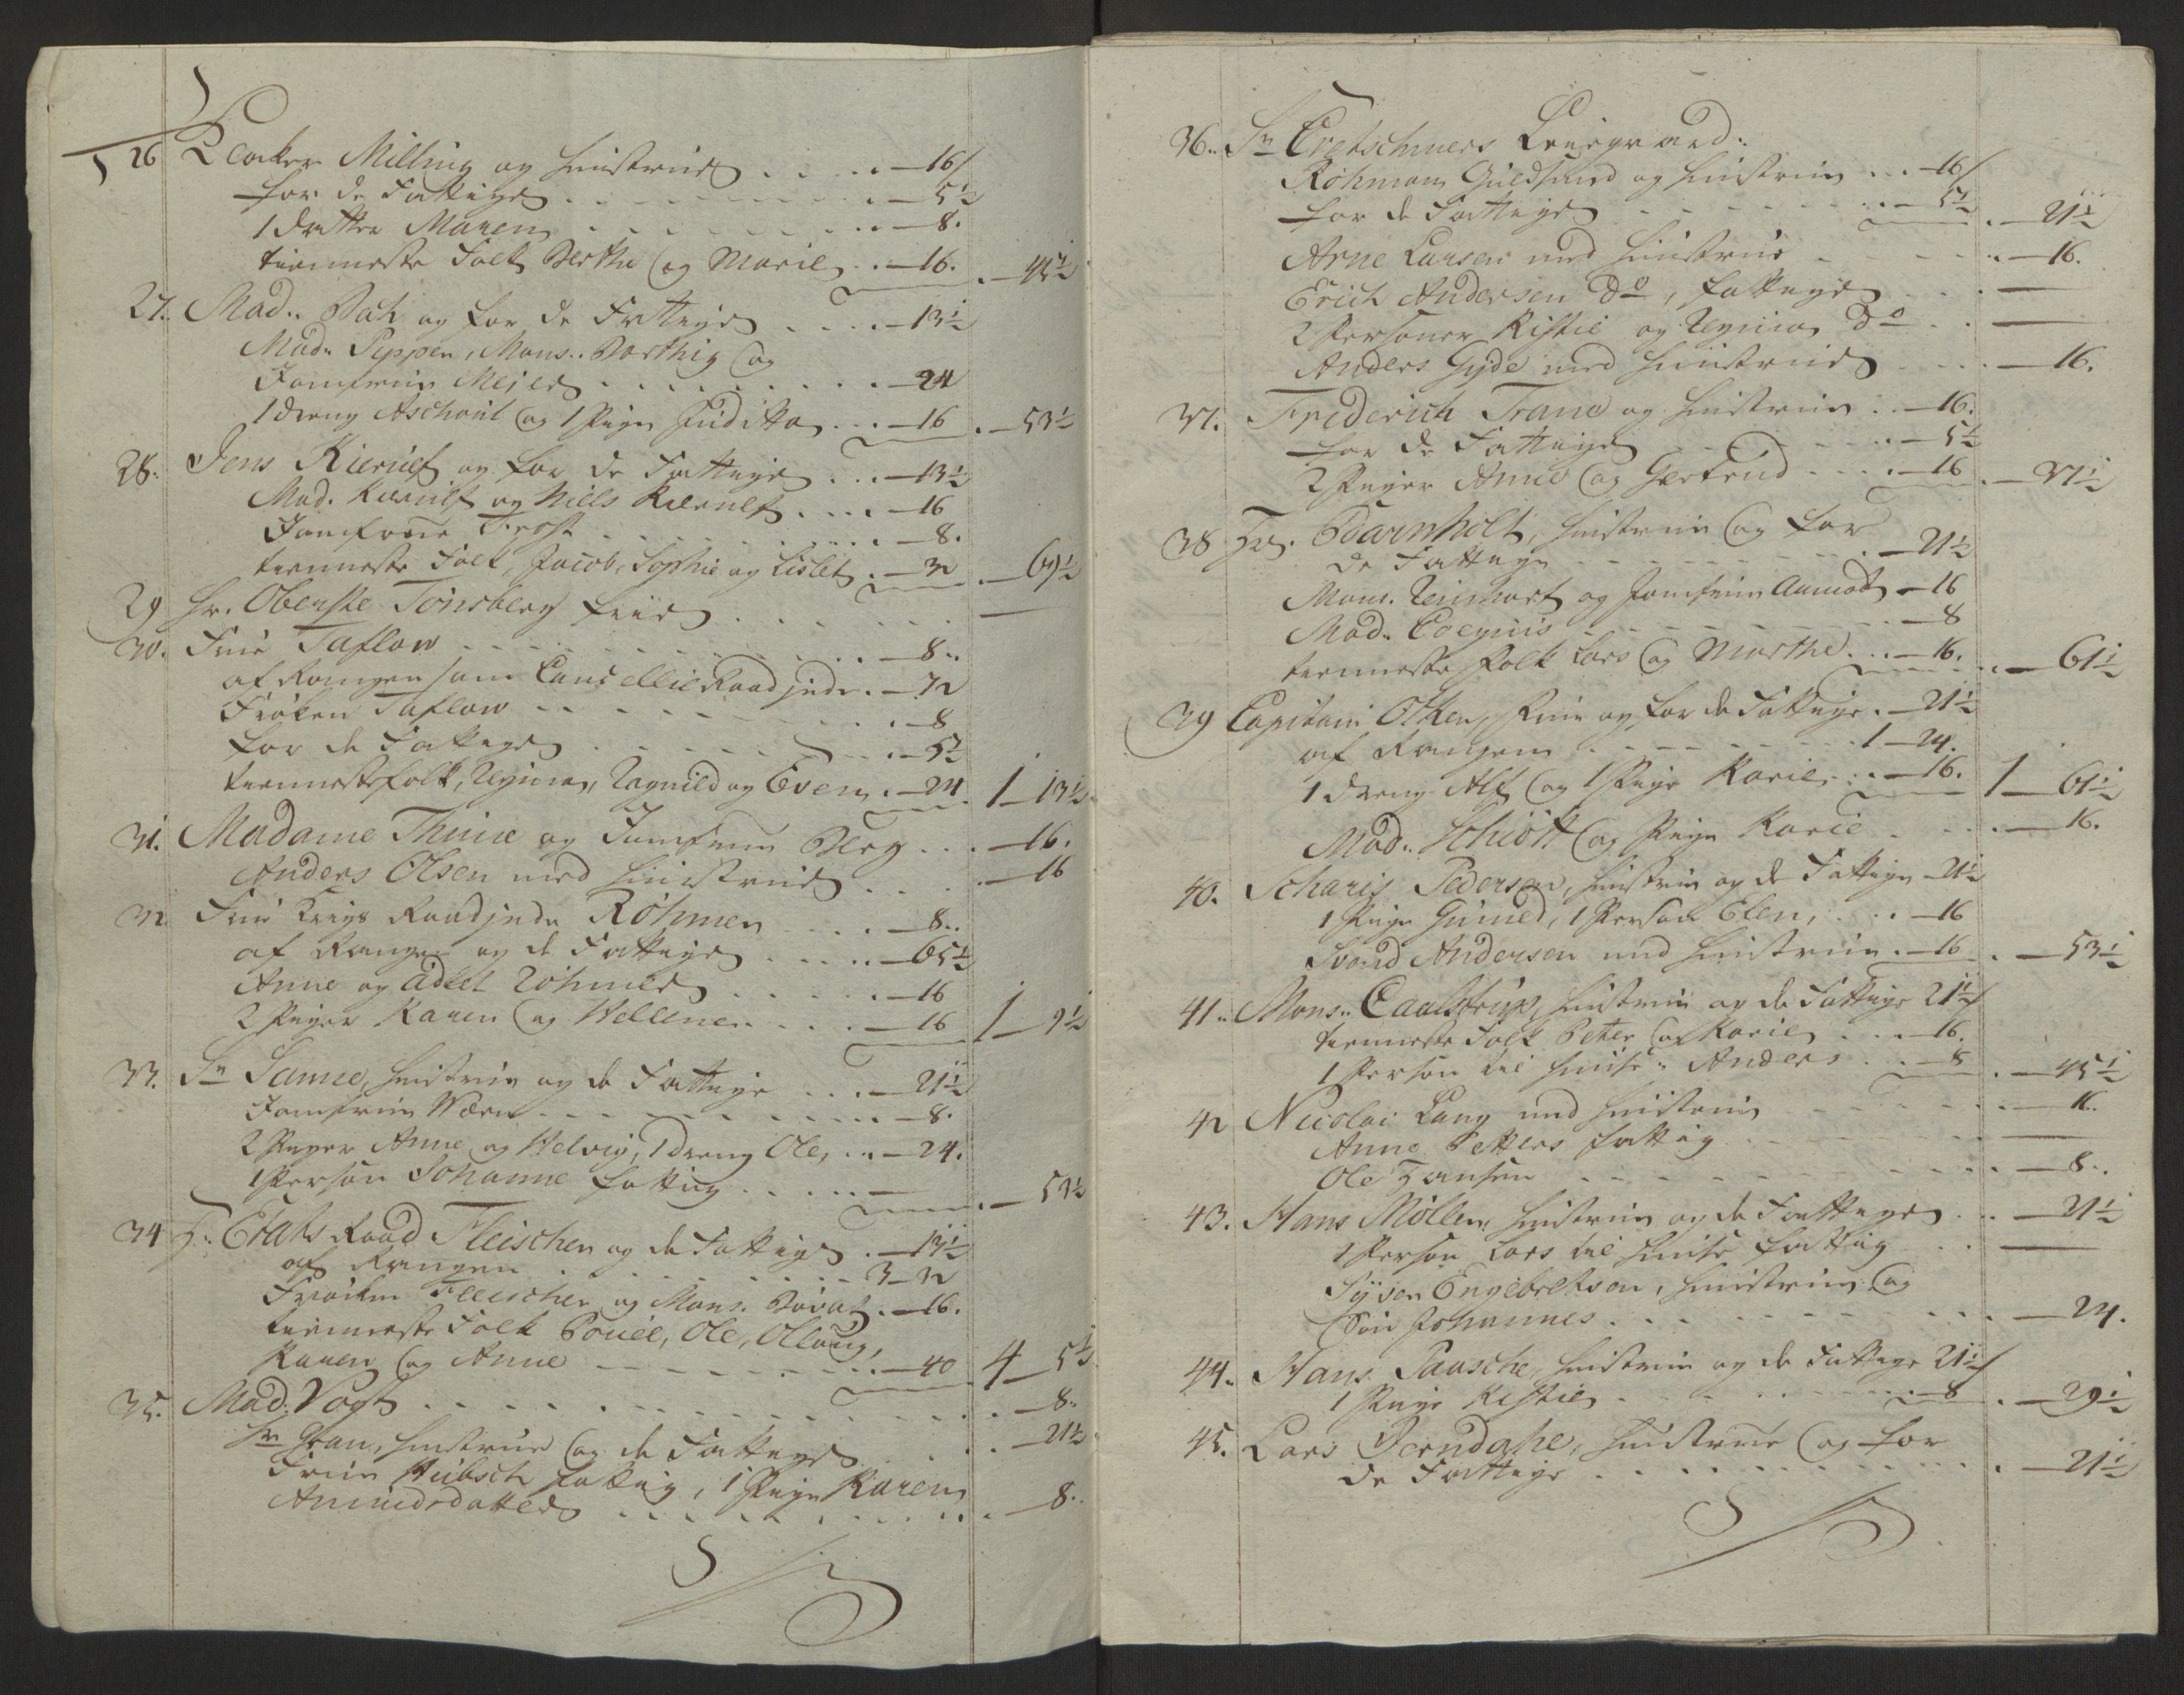 26 Peder Milling og Hustrue . . . . — 16
for de Fattige . . . . — 5½
1 Datter Maren . . . . — 8.
tienneste Folk Berthe og Marie . — 16. . — 45½
27. Mad: Bah og for de Fattige . . . . — 13½
Mad: Peppen, Mons: Barthig og
Jomfrue Meier . . . . — 24
1 Dreng Aschout og 1 Pige Juditta . . — 16 . — 53½
28. Jens Kierulf og for de Fattige . . . — 13½
Mad. Kierulf og Niels Kierulf . . . . — 16
Jomfrue Frost . . . . — 8.
tienneste Folk, Jacob, Sophie og Lisbet . — 32 . — 69½
29 Hr. Oberste Tønsberg frie . . . . —
30. Frue Taflow . . . . — 8..
af Rangen som Cancellie Raadinde . — 72
Frøken Taflow . . . . — 8
for de Fattige . . . . — 5½
tiennestefolk, Regina, Ragnild og Even . — 24 1 — 13½
31. Madame Thune og Jomfrue Berg . . . — 16.
Anders Olsen med Hustrue . . . . — 16
32 Frue Krigs Raadinde Röhmen . . . — 8..
af Rangen og de Fattige . . . . — 65½
Anne og Adlet Röhmer . . . . — 16
2 Piger Karen og Wellene . . . — 16 1 — 9½
33. Sr Sanne, Hustrue og de Fattige . . . — 21½
Jomfrue Wærn . . . . — 8.
2 Piger Anne og Helvig, 1 Dreng Ole, . . — 24.
1 Person Johanne fattig . . . . — . — 53½
34 Hr: Etats Raad Fleischer og de Fattige . — 13½
af Rangen . . . . 3 — 32
Frøken Fleischer og Mons. . — 16.
tienneste Folk Povel, Ole, Olloug,
Karen og Anne . . . . — 40 4 — 5½
35. Mad: Vogt . . . . — 8..
Sr Gran, Hustrue og de Fattige . . — 21½
Frue Hübsch fattig, 1 Pige Karen
Amundsdatter . . . . — 8..
36. Sr Cretschmers Leiegaard:
Röhman Guldsmed og Hustrue . . . — 16
for de Fattige . . . . — 5½ . — 21½
Arne Larsen med Hustrue . . . . — 16.
Erich Andersen do, fattige . . . —
2 Personer Kistie og Regina do . . —
Anders Gyde med Hustrue . . . . — 16.
37. Friderich Trane og Hustrue . . — 16.
for de Fattige . . . . — 5½
2 Piger Anne og Gertrud . . . — 16 . — 37½
38 Hr. Baarnholt, Hustrue og for
de Fattige . . . . — 21½
Mons. Reinhart og Jomfrue Aamodt — 16
Mad. . . . . — 8
tienneste Folk Lars og Marthe . . . — 16. . . — 61½
39 Capitain Olsen, Frue og for de Fattige . — 21½
af Rangen . . . . 1 — 24.
1 Dreng Alf og 1 Pige Karie . . . — 16. 1 — 61½
Mad. Schiött og Pige Karie . . . . — 16.
40. Scharis Pedersen, Hustrue og de Fattige — 21½
1 Pige Guned, 1 Person Elen, . . . — 16
Svend Andersen med Hustrue . — 16 . — 53½
41.. Mons.. Caalstrup, Hustrue og de Fattige 21½
tienneste Folk Peter og Karie . . . — 16.
1 Person til Huuse: Anders . . — 8 . — 45½
42 Nicolai Lang med Hustrue . . . . — 16.
Anne Petters fattig . . . . —
Ole Hansen . . . . — 8..
43. Hans Möller, Hustrue og de Fattige . . — 21½
1 Person Lars til Huuse fattig . . —
Syver Engebretsen, Hustrue og
Søn Johannes . . . . — 24.
44. Hans Paasche, Hustrue og de Fattige 21½
1 Pige Kistie . . . . — 8 . — 29½
45. Lars Jerndahl, Hustrue og for
de Fattige . . . . — 21½